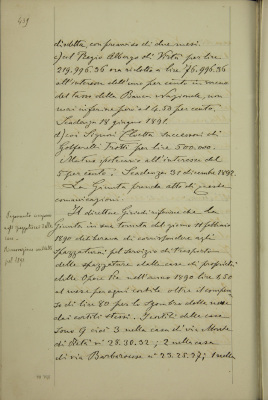 439
disdetta, con preavviso di due mesi.
c) col Regio Albergo di Virtù per lire
219.996.36 ora ridotto a lire 76.996.36
all'interesse dell'uno per cento in meno
del tasso della Banca Nazionale, non
mai inferiore però al 4.50 per cento.
Scadenza 18 giugno 1891.
d) coi Signori Chetta successori di
Trotti per lire 500.000.
Mutuo ipotecario all'interesse del
5 per cento. Scadenza 31 dicembre 1892.
La Giunta prende atto di queste
comunicazioni.
Il direttore Girardi informa che la
Giunta in sua tornata del giorno 11 febbraio
1890 deliberava di corrispondere agli
spazzaturai pel servizio di trasporto
delle spazzature dalle case di proprietà
delle Opere Pie nell'anno 1890 lire 1,50
al mese per ogni cortile oltre il compenso
di lire 80 per lo sgombro delle nevi
dai cortili stessi. I cortili delle case
sono 9 cioè 3 nella casa di via Monte
di Pietà ni 28.30.32; 2 nella casa
di via Barbaroux ni 23.25.27; 1 nella
Pagamento compenso
agli spazzaturai delle
case.
pel 1891